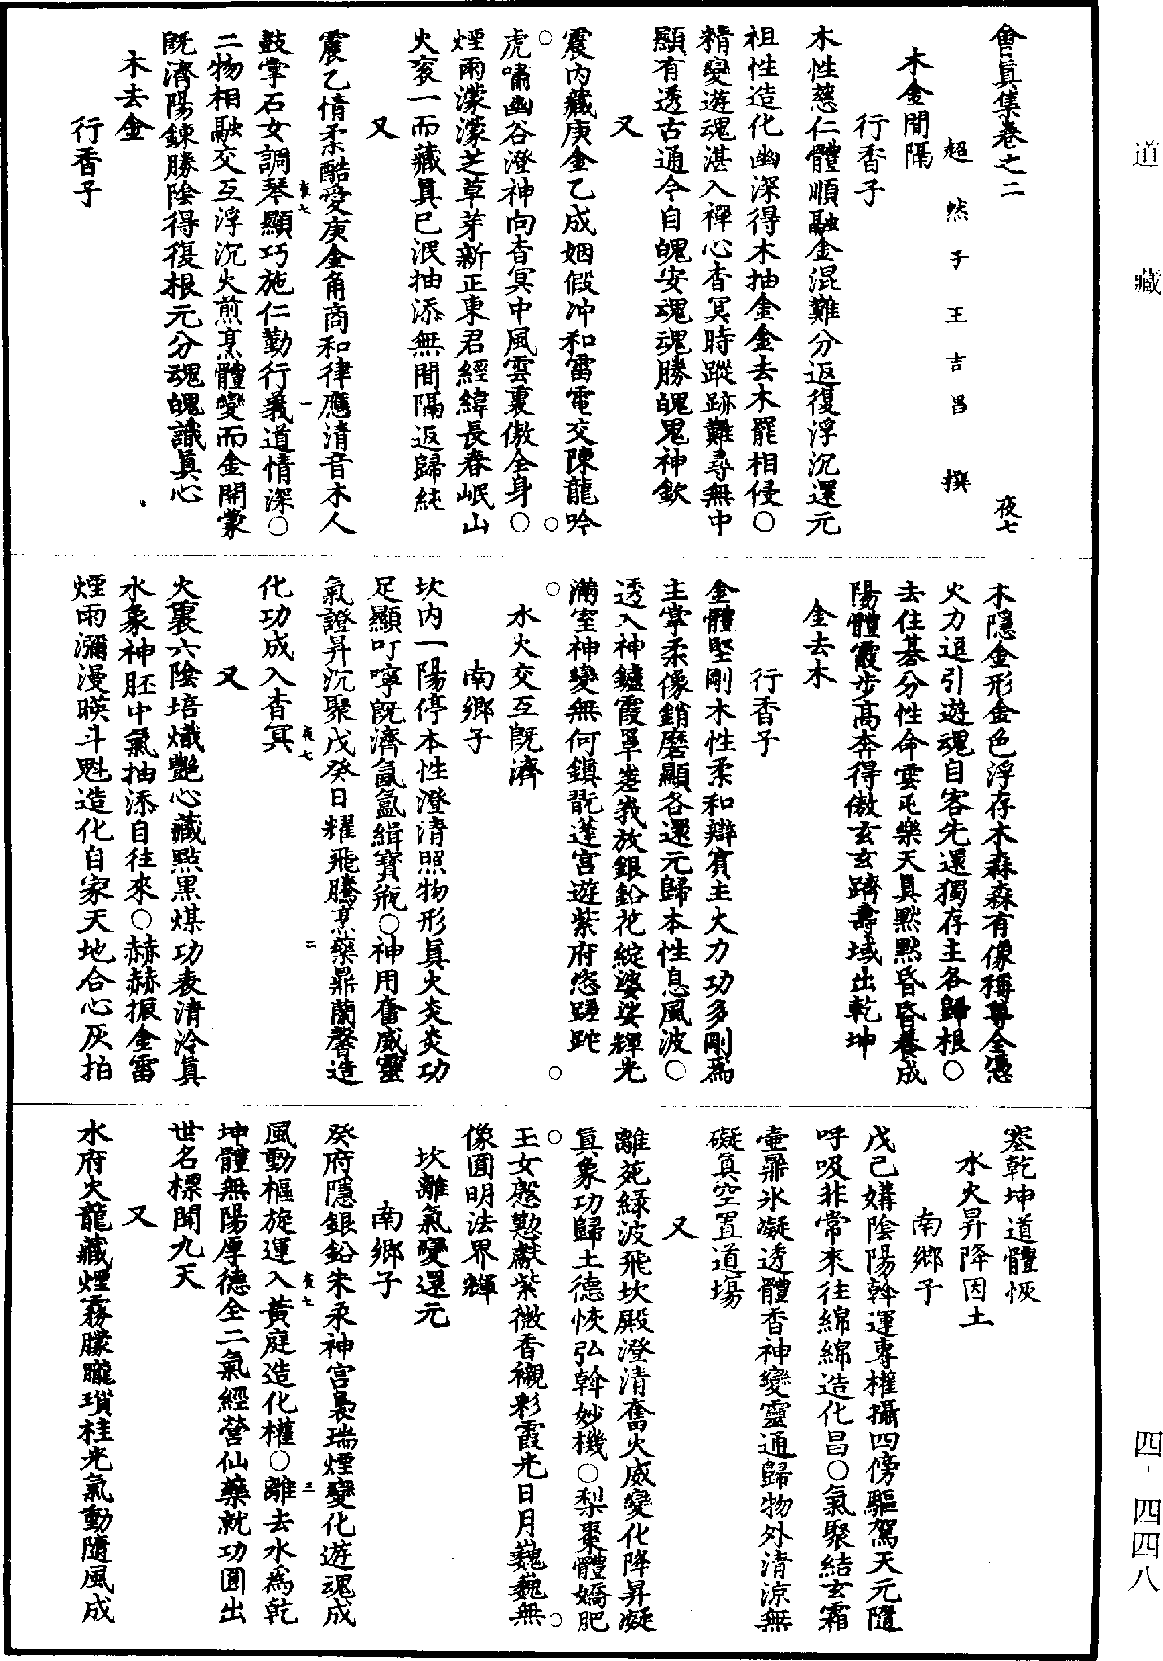 道藏
會真集卷之二
夜七
超然子王吉昌撰
木金間隔
行香子
木性慈仁體順融金混難分返復浮沉還元
祖性造化幽深得木抽金金去木罷相侵○
精變遊魂湛入禪心杳冥時蹤跡難尋無中
顯有透古通今自魄安魂魂勝魄鬼神欽
又
震內藏庚金乙成姻假冲和雷電交陳龍吟
虎嘯幽谷澄神向杳冥中風雲裏傲全身○
煙雨濛濛芝草芽新正東君經緯長春岷山
火衮一而藏真已泯抽添無間隔返歸純
又
震乙情柔酷愛庚金角商和律應清音木人
鼓掌石女調琴顯巧施仁勤行義道情深○
二物相融交互浮沉火煎烹體變而金開蒙
既濟陽鍊勝陰得復根元分魂魄識真心
木去金
行香子
木隱金形金色浮存木森森有像稱尊全憑
火力追引遊魂自客先還獨存主各歸根○
去住碁分性命雲屯樂天真默默昏昏養成
陽體霞步高奔得傲玄玄躋壽域出乾坤
金去木
行香子
金體堅剛木性柔和辯賓主火力功多剛為
主宰柔像銷磨顯各還元歸本性息風波○
透入神鑪霞罩嵳峩放銀鉛花綻婆娑輝光
滿室神變無何鎮翫蓬宮遊紫府恣蹉跎
水火交互既濟
南鄉子
坎內一陽停本性澄清照物形真火炎炎功
足顯叮嚀既濟氤氳緝寶瓶○神用奮威靈
氣證昇沉聚戊癸日耀飛騰烹藥鼎蘭馨造
化功成入杳冥
又
火裏六陰培熾艷心藏點黑煤功表清泠真
水象神胚中氣抽添自往來○赫赫振金雷
煙雨瀰漫暎斗魁造化自家天地合心灰拍
塞乾坤道體恢
水火昇降因土
南鄉子
戊己媾陰陽斡運專權攝四傍驅駕天元隨
呼吸非常來往綿綿造化昌○氣聚結玄霜
壷鼎氷凝透體香神變靈通歸物外清涼無
礙真空置道場
又
離苑綠波飛坎殿澄清奮火威變化降昇凝
真象功歸土德恢弘斡妙機○梨棗體嬌肥
玉女慇懃獻紫微香襯彩霞光日月巍巍無
像圓明法界輝
坎離氣變還元
南鄉子
癸府隱銀鉛朱汞神宮裊瑞煙變化遊魂成
風動樞旋運入黃庭造化權○離去水為乾
坤體無陽厚德全二氣經營仙藥就功圓出
世名標閬九天
又
水府火龍藏煙霧朦朧瑣桂光氣動隨風成
夜七 一
夜七 二
夜七 三
四-四四八